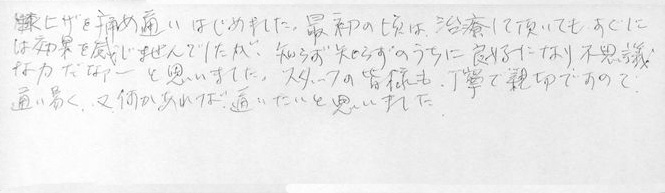 膝とひざを痛め通いはじめました。最初の頃は、治療して頂いても、すぐに
は効果を感じませんでしたが、知らず知らずのうちに良好になり不思議
な力だなーと思いました。スタッフの皆様も、丁寧で親切ですので、
通い易く、又何かあれば、通いたいと思いました。